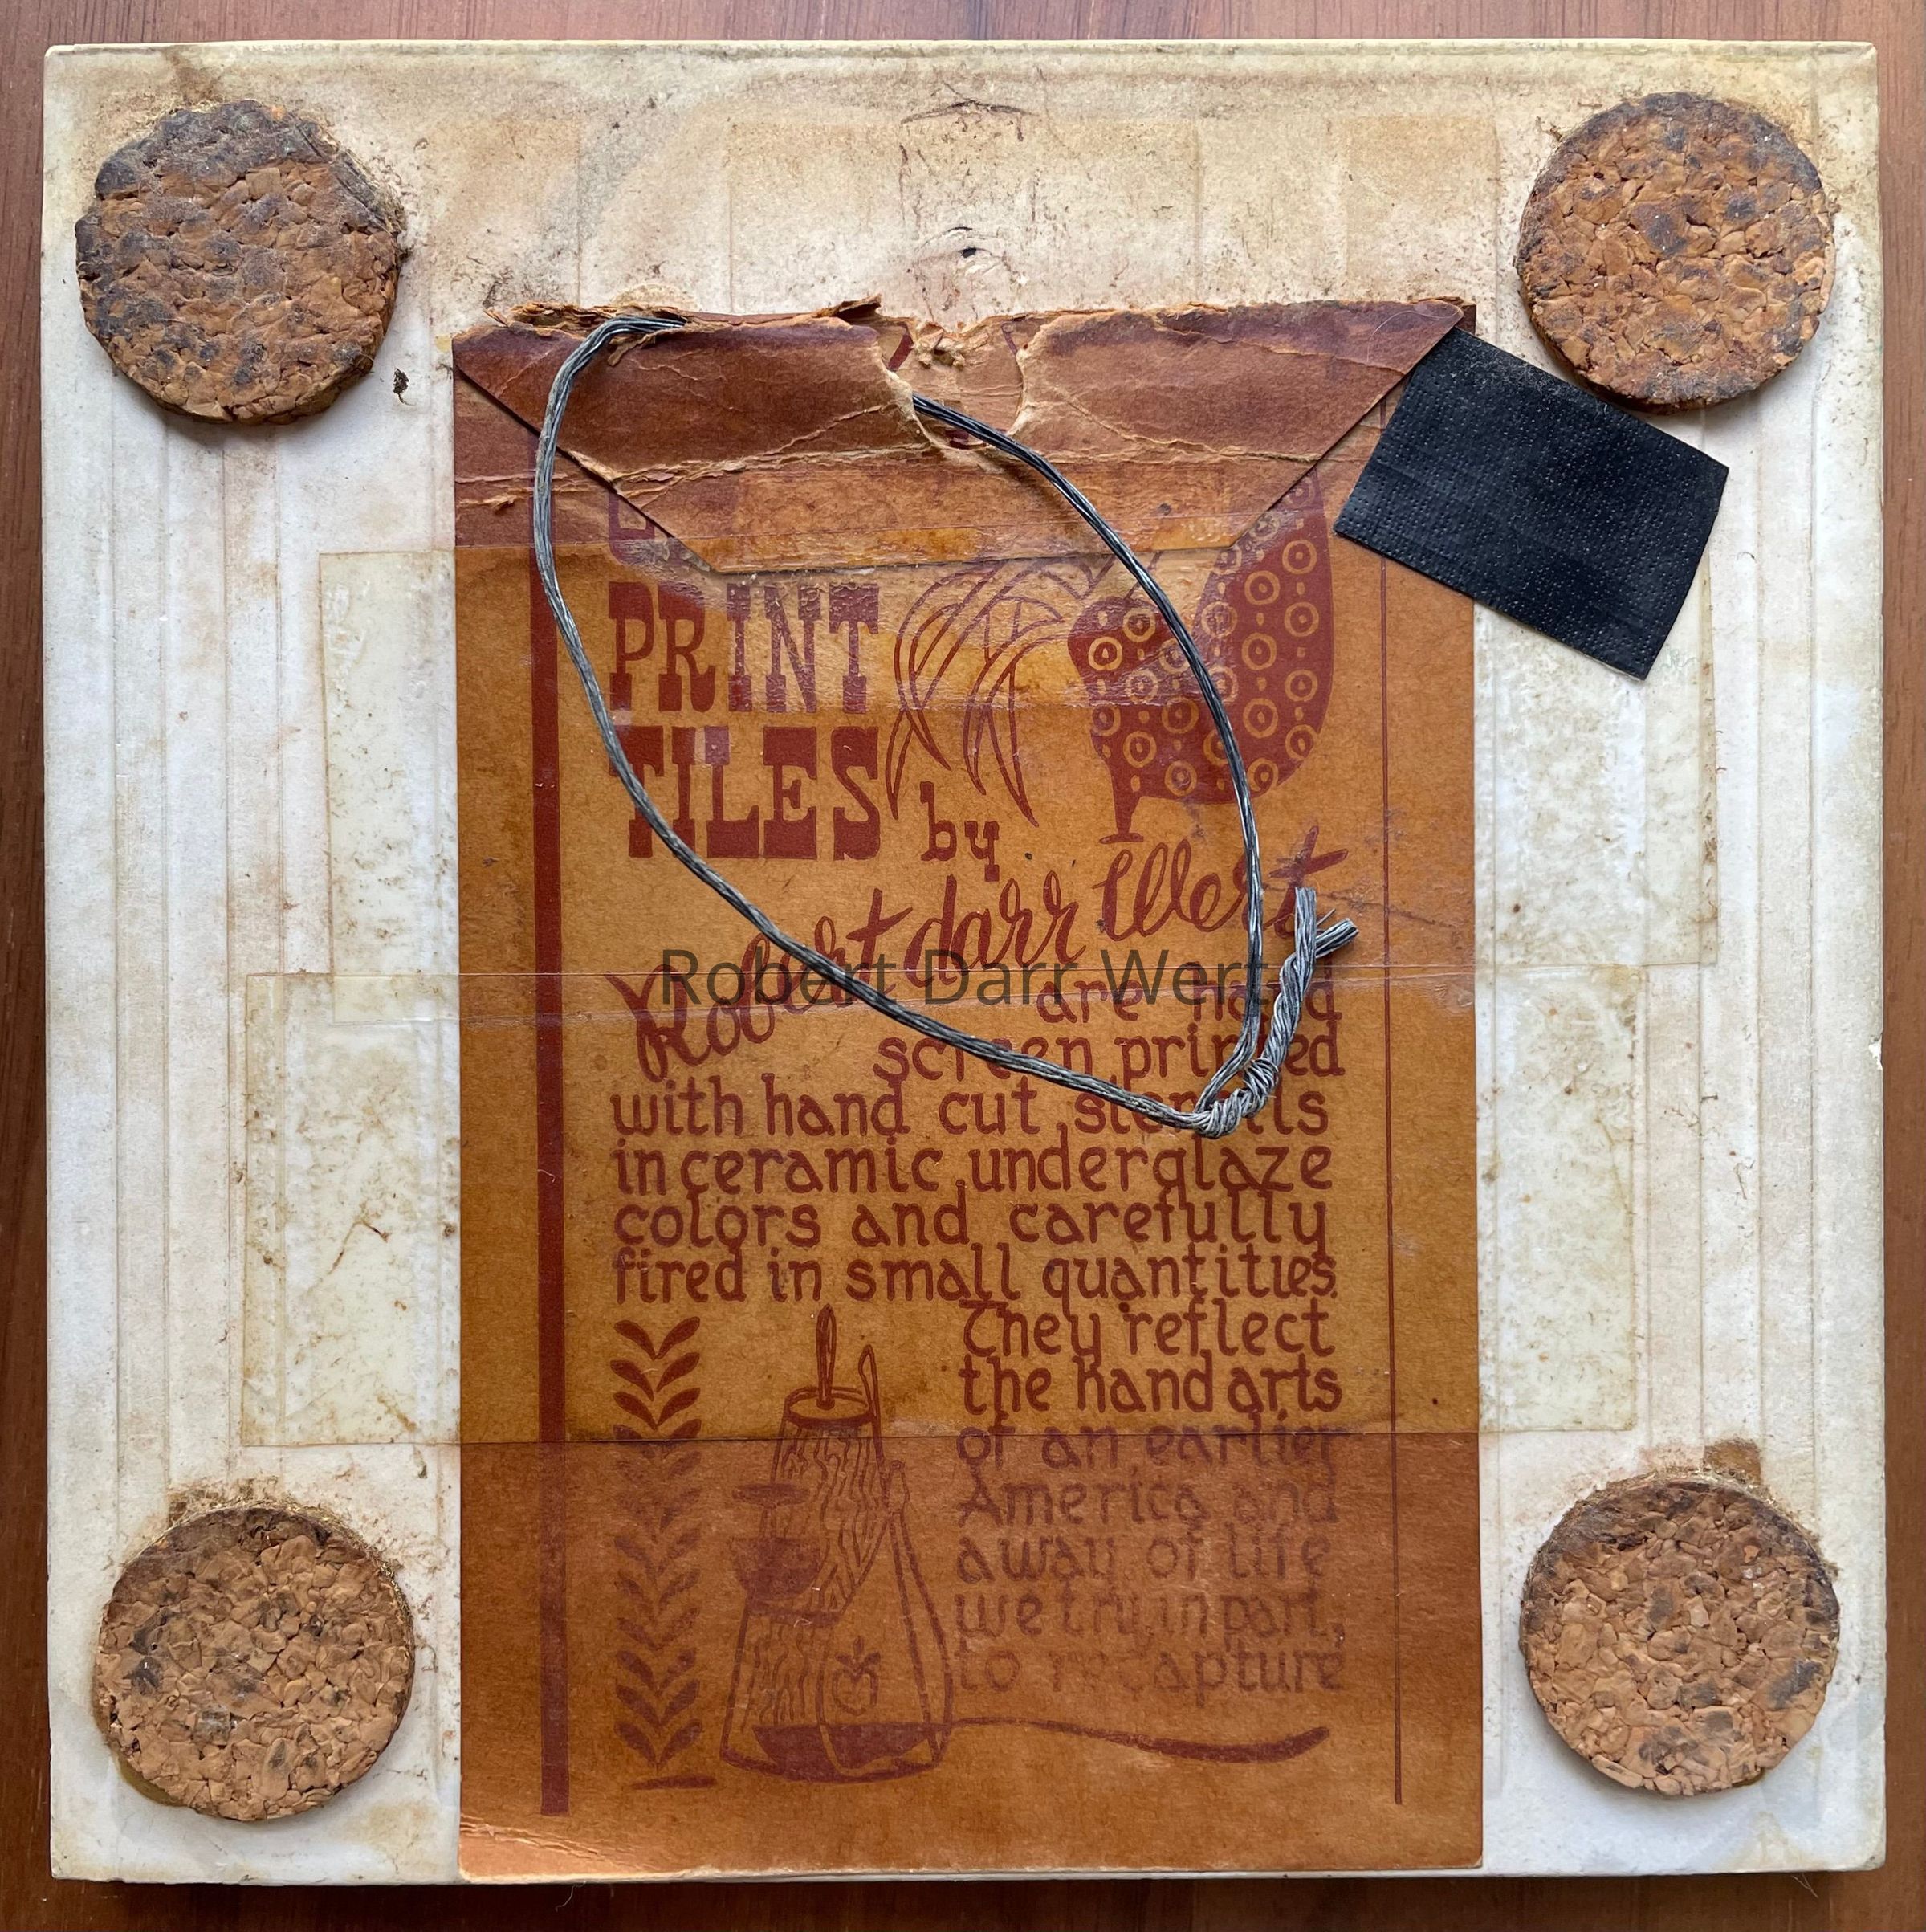 PRINT
TILES by
Robert darr Wert
Robert Darr Wert
are hand
screen printed
with hand cut stencils
in ceramic underglaze
colors and carefully
fired in small quantities.
They reflect
the hand arts
of an earlier
America and
a way of life
we try, in part,
to recapture